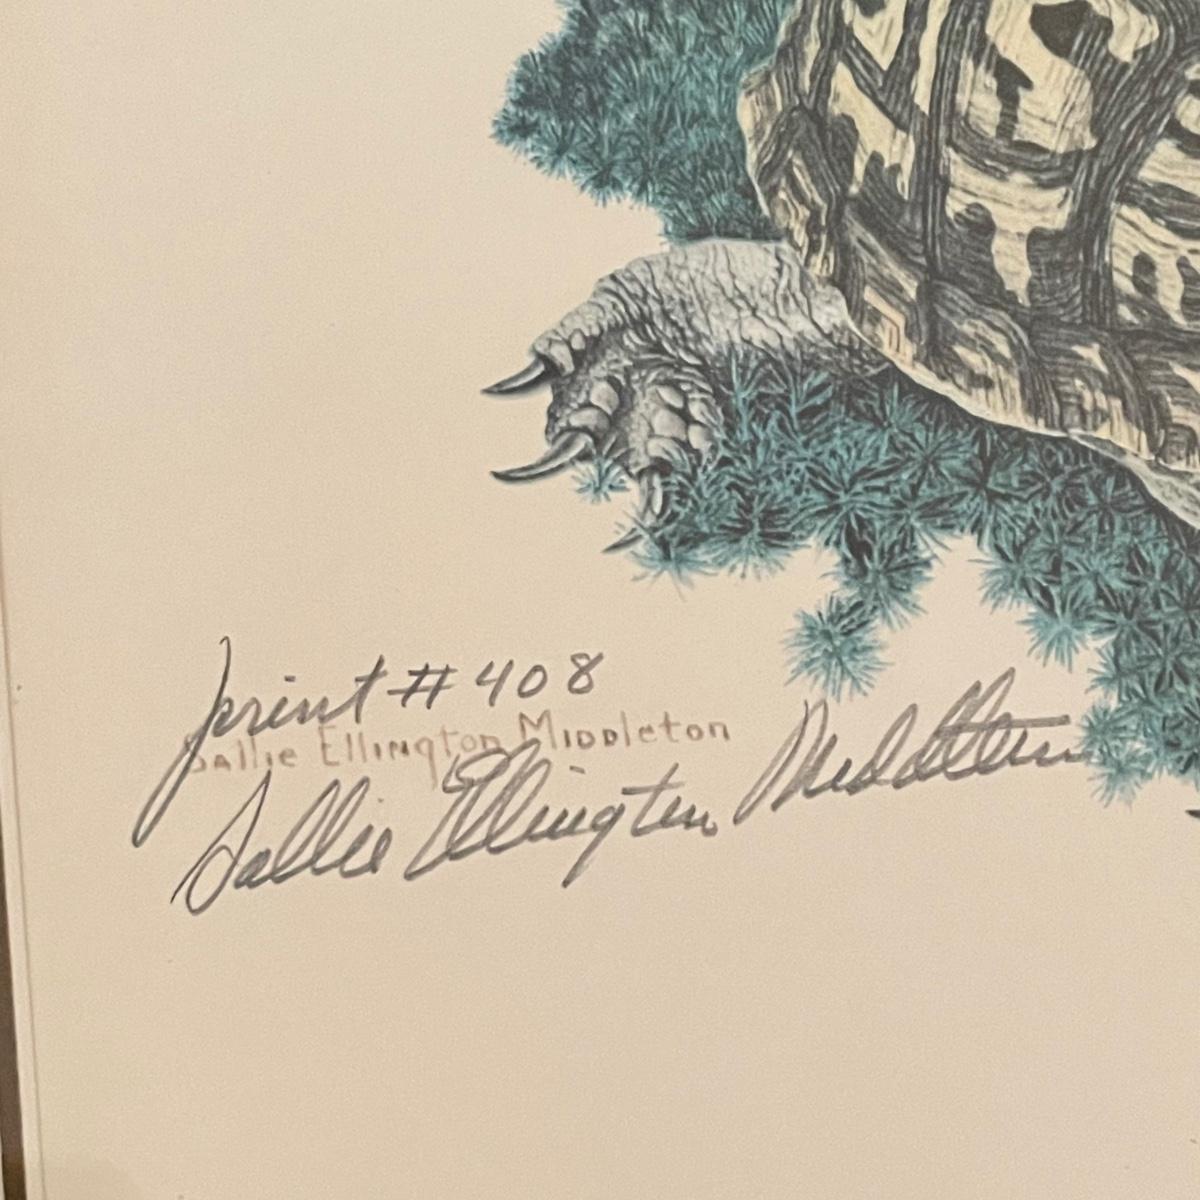 print # 408
Sallie Ellington Middleton
Sallie Ellington Middleton